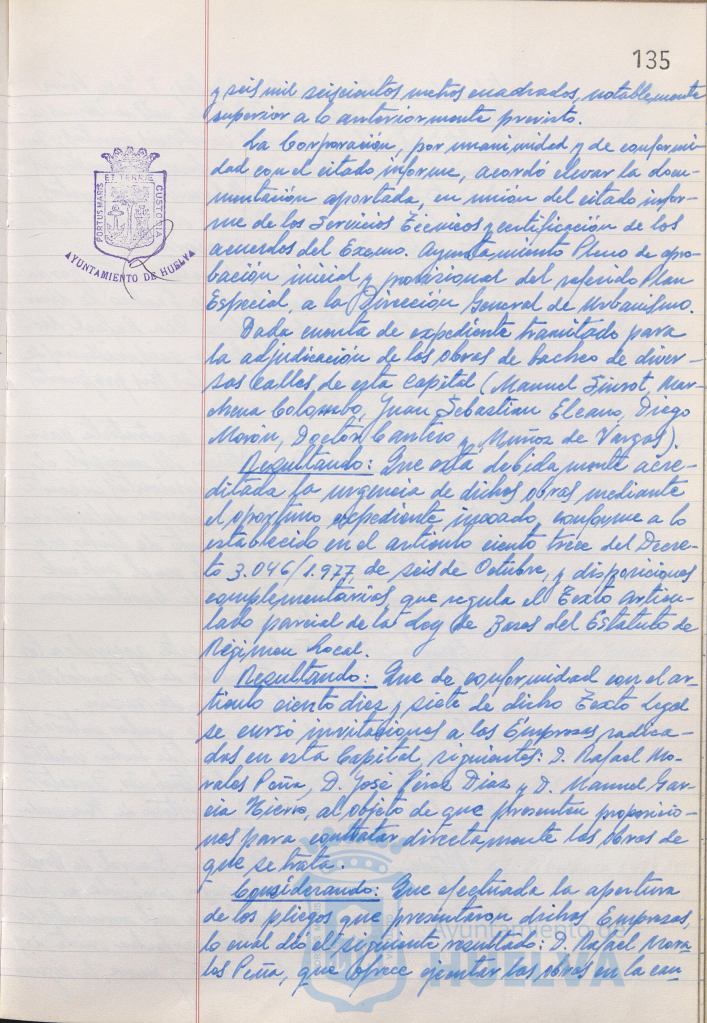 135
y seis mil seiscientos metros cuadrados, notablemente
superior a lo anteriormente previsto.
La Corporación, por unanimidad y de conformi-
dad con el citado informe, acordó elevar la docu-
mentación aportada, en unión del citado infor-
me de los Servicios Técnicos y certificación de los
acuerdos del Excmo. Ayuntamiento Pleno de apro-
bación inicial y provisional del referido Plan
Especial, a la Dirección General de Urbanismo.
Dada cuenta de expediente tramitado para
la adjudicación de las obras de bacheo de diver-
sas calles de esta Capital (Manuel Siurot, Mar-
chena Colombo, Juan Sebastian Elcano, Diego
Morón, Doctor Cantero y Muñoz de Vargas).
Resultando: Que está debidamente acre-
ditada la urgencia de dichas obras mediante
el oportuno expediente incoado, conforme a lo
establecido en el artículo ciento trece del Decre-
to 3.046/1.977, de seis de Octubre, y disposiciones
complementarias, que regula el Texto articu-
lado parcial de la Ley de Bases del Estatuto de
Régimen Local.
Resultando: Que de conformidad con el ar-
tículo ciento diez y siete de dicho Texto Legal
se cursó invitaciones a las Empresas radica-
das en esta Capital, siguientes: D. Rafael Mo-
rales Peña, D. José Pérez Díaz y D. Manuel Gar-
cía Hierro, al objeto de que presenten proposicio-
nes para contratar directamente las obras de
que se trata.
Considerando: Que efectuada la apertura
de los pliegos que presentaron dichas Empresas,
lo cual dió el siguiente resultado: D. Rafael Mora-
les Peña, que ofrece ejecutar las obras en la can-
PORTUS MARIS ET TERRAE CUSTODIA
AYUNTAMIENTO DE HUELVA
Ayuntamiento de
HUELVA